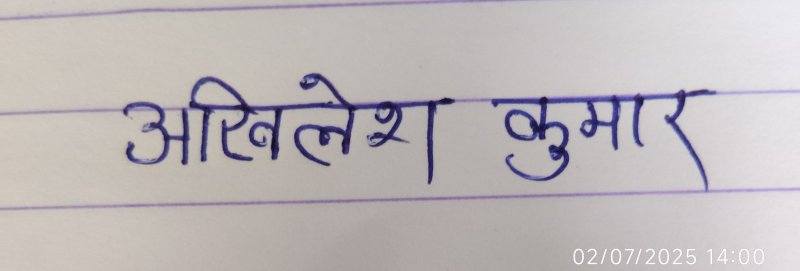 अखिलेश कुमार
02/07/2025 14:00